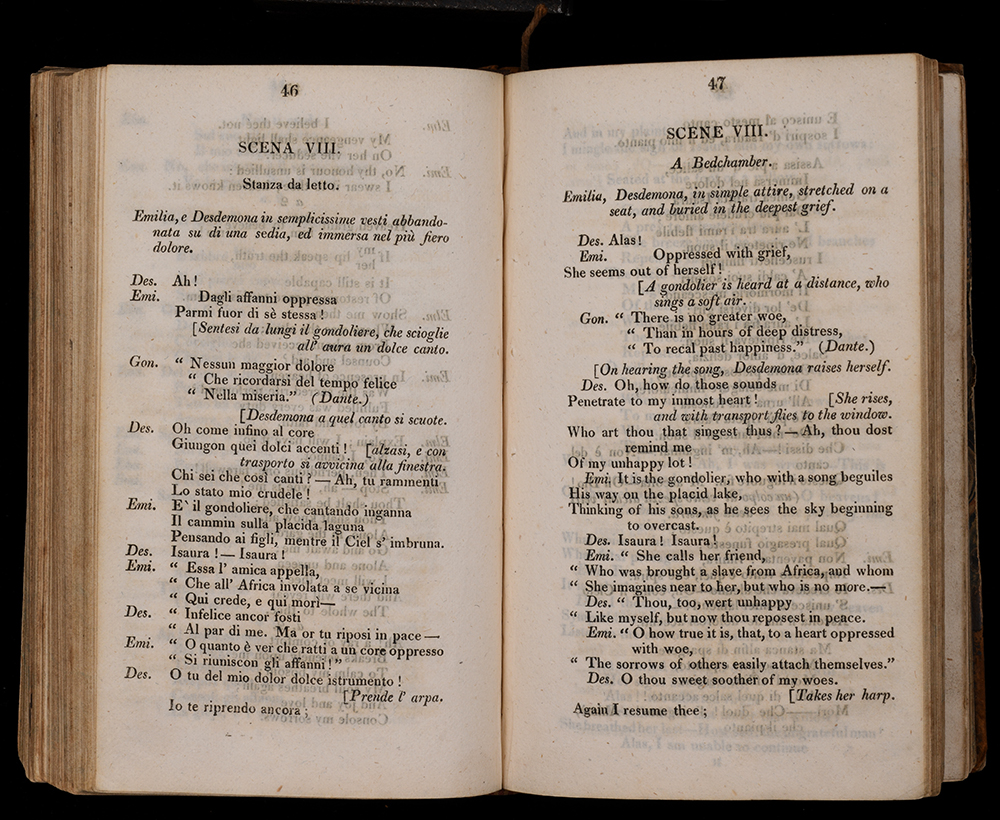 46
SCENA VIII.
Stanza da letto.
Emilia, e Desdemona in semplicissime vesti abbando-
nata su di una sedia, ed immersa nel più fiero
dolore.
Des. Ah!
Emi. Dagli affanni oppressa
Parmi fuor di sè stessa!
[Sentesi da lungi il gondoliere, che scioglie
all' aura un dolce canto.
Gon. “ Nessun maggior dolore
“ Che ricordarsi del tempo felice
“ Nella miseria.” (Dante.)
[Desdemona a quel canto si scuote.
Des. Oh come infino al core
Giungon quei dolci accenti! [alzasi, e con
trasporto si avvicina alla finestra.
Chi sei che così canti? — Ah, tu rammenti
Lo stato mio crudele!
Emi. E` il gondoliere, che cantando inganna
Il cammin sulla placida laguna
Pensando ai figli, mentre il Ciel s' imbruna.
Des. Isaura!— Isaura!
Emi. “ Essa l' amica appella,
“ Che all' Africa involata a se vicina
“ Qui crede, e qui morì—
Des. “ Infelice ancor fosti
“ Al par di me. Ma or tu riposi in pace —
Emi. “ O quanto è ver che ratti a un core oppresso
“ Si riuniscon gli affanni!”
Des. O tu del mio dolor dolce istrumento!
[Prende l' arpa.
Io te riprendo ancora;
47
SCENE VIII.
A Bedchamber.
Emilia, Desdemona, in simple attire, stretched on a
seat, and buried in the deepest grief.
Des. Alas!
Emi. Oppressed with grief,
She seems out of herself!
[A gondolier is heard at a distance, who
sings a soft air.
Gon. “ There is no greater woe,
“ Than in hours of deep distress,
“ To recal past happiness.” (Dante.)
[On hearing the song, Desdemona raises herself.
Des. Oh, how do those sounds
Penetrate to my inmost heart! [She rises,
and with transport flies to the window.
Who art thou that singest thus? — Ah, thou dost
remind me
Of my unhappy lot!
Emi. It is the gondolier, who with a song beguiles
His way on the placid lake,
Thinking of his sons, as he sees the sky beginning
to overcast.
Des. Isaura! Isaura!
Emi. “ She calls her friend,
“ Who was brought a slave from Africa, and whom
“ She imagines near to her, but who is no more.—
Des. “ Thou, too, wert unhappy
“ Like myself, but now thou reposest in peace.
Emi. “ O how true it is, that, to a heart oppressed
with woe,
“ The sorrows of others easily attach themselves.”
Des. O thou sweet soother of my woes.
[Takes her harp.
Again I resume thee;